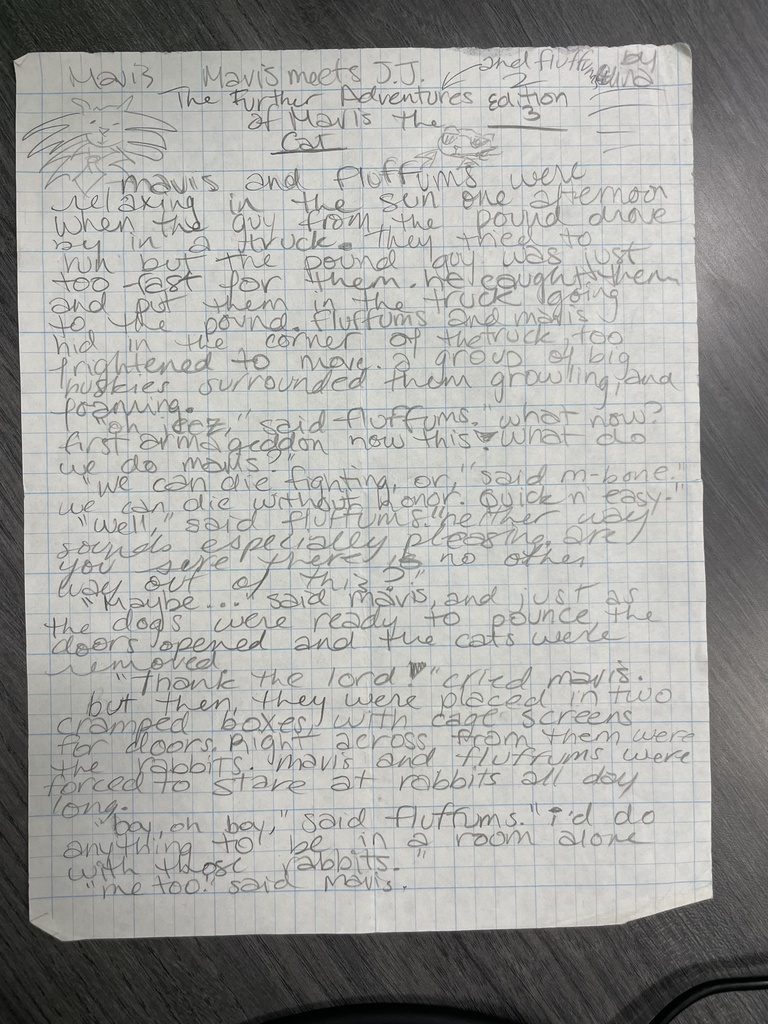 Mavis Mavis meets J.J. and fluff by
The Further Adventures 2 Edition
of Mavis the 3
Cat
mavis and fluffums were
relaxing in the sun one afternoon
when the guy from the pound drove
by in a truck. They tried to
run but the pound guy was just
too fast for them. he caught them
and put them in the truck going
to the pound. fluffums and mavis
hid in the corner of the truck, too
frightened to move. a group of big
huskies surrounded them growling, and
foaming.
"oh jeez," said fluffums. "what now?
first armageddon now this. what do
we do mavis?"
"we can die fighting, or," said m-bone."
we can die without honor. Quick n easy."
"well," said fluffums. "neither way
sounds especially pleasing. are
you sure there is no other
way out of this?"
"Maybe..." said mavis, and just as
the dogs were ready to pounce, the
doors opened and the cats were
removed
"Thank the lord!" cried mavis.
but then, they were placed in two
cramped boxes, with cage screens
for doors. Right across from them were
the rabbits. mavis and fluffums were
forced to stare at rabbits all day
long.
"boy, oh boy," said fluffums. "i'd do
anything to be in a room alone
with those rabbits."
"me too." said mavis.